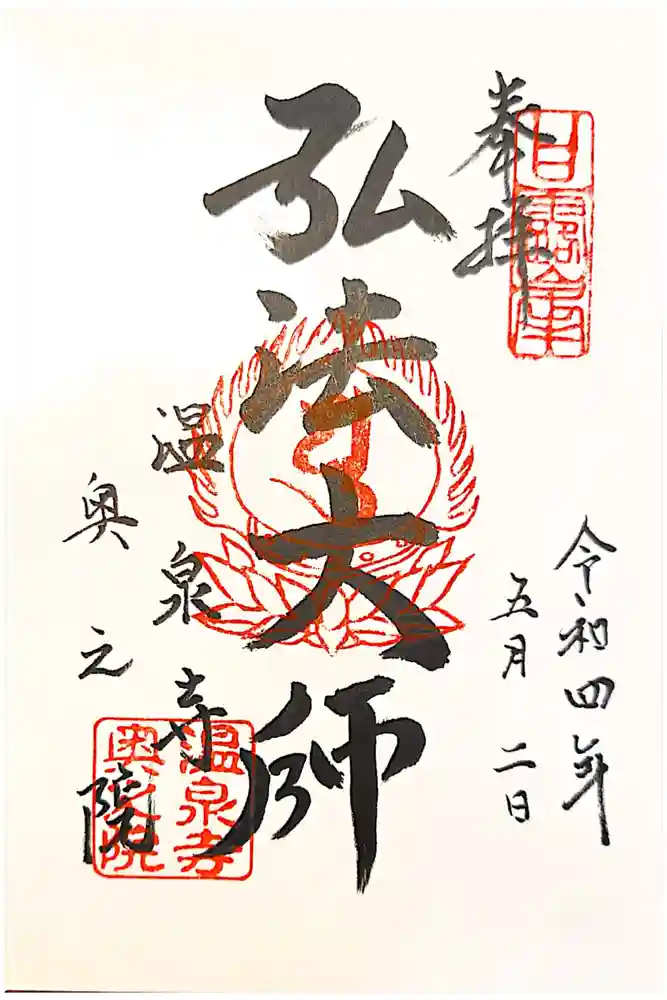 奉拝
甘露命末
令和四年
五月二日
弘法大師
温泉寺
奥之院
温泉寺
奥之院